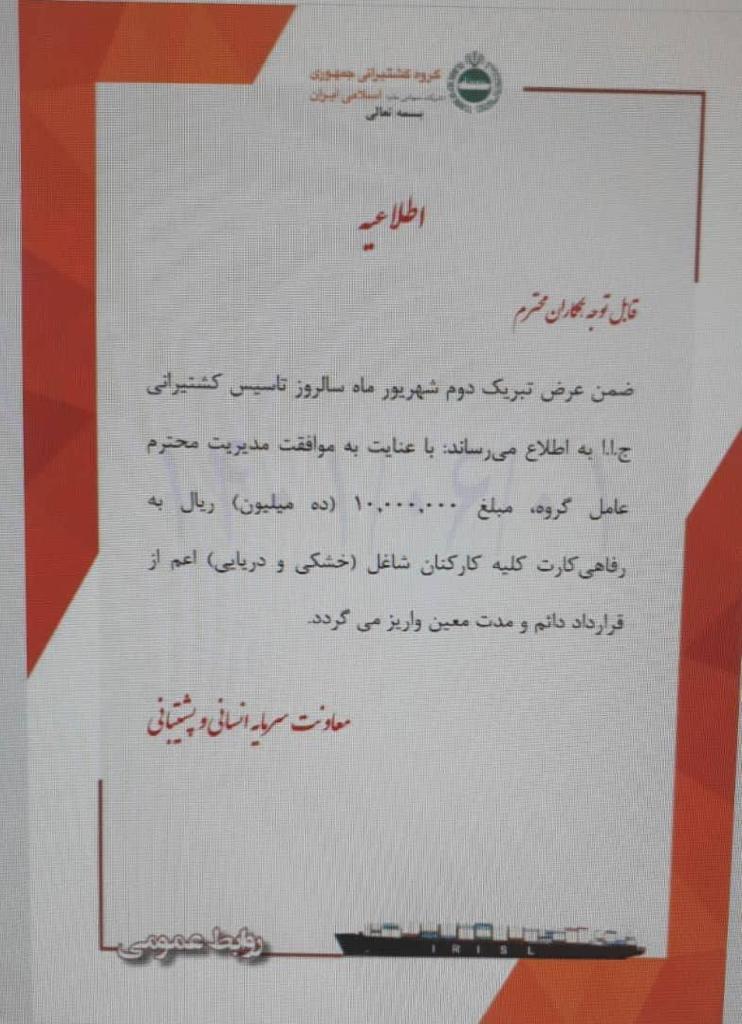 گروه کشتیرانی جمهوری
اسلامی ایران
بسمه تعالی
اطلاعیه
قابل توجه همکاران محترم
ضمن عرض تبریک دوم شهریور ماه سالروز تاسیس کشتیرانی
ج.ا.ا به اطلاع می‌رساند: با عنایت به موافقت مدیریت محترم
عامل گروه، مبلغ ۱۰,۰۰۰,۰۰۰ (ده میلیون) ریال به
رفاهی‌کارت کلیه کارکنان شاغل (خشکی و دریایی) اعم از
قرارداد دائم و مدت معین واریز می گردد.
معاونت سرمایه انسانی و پشتیبانی
روابط عمومی
IRISL